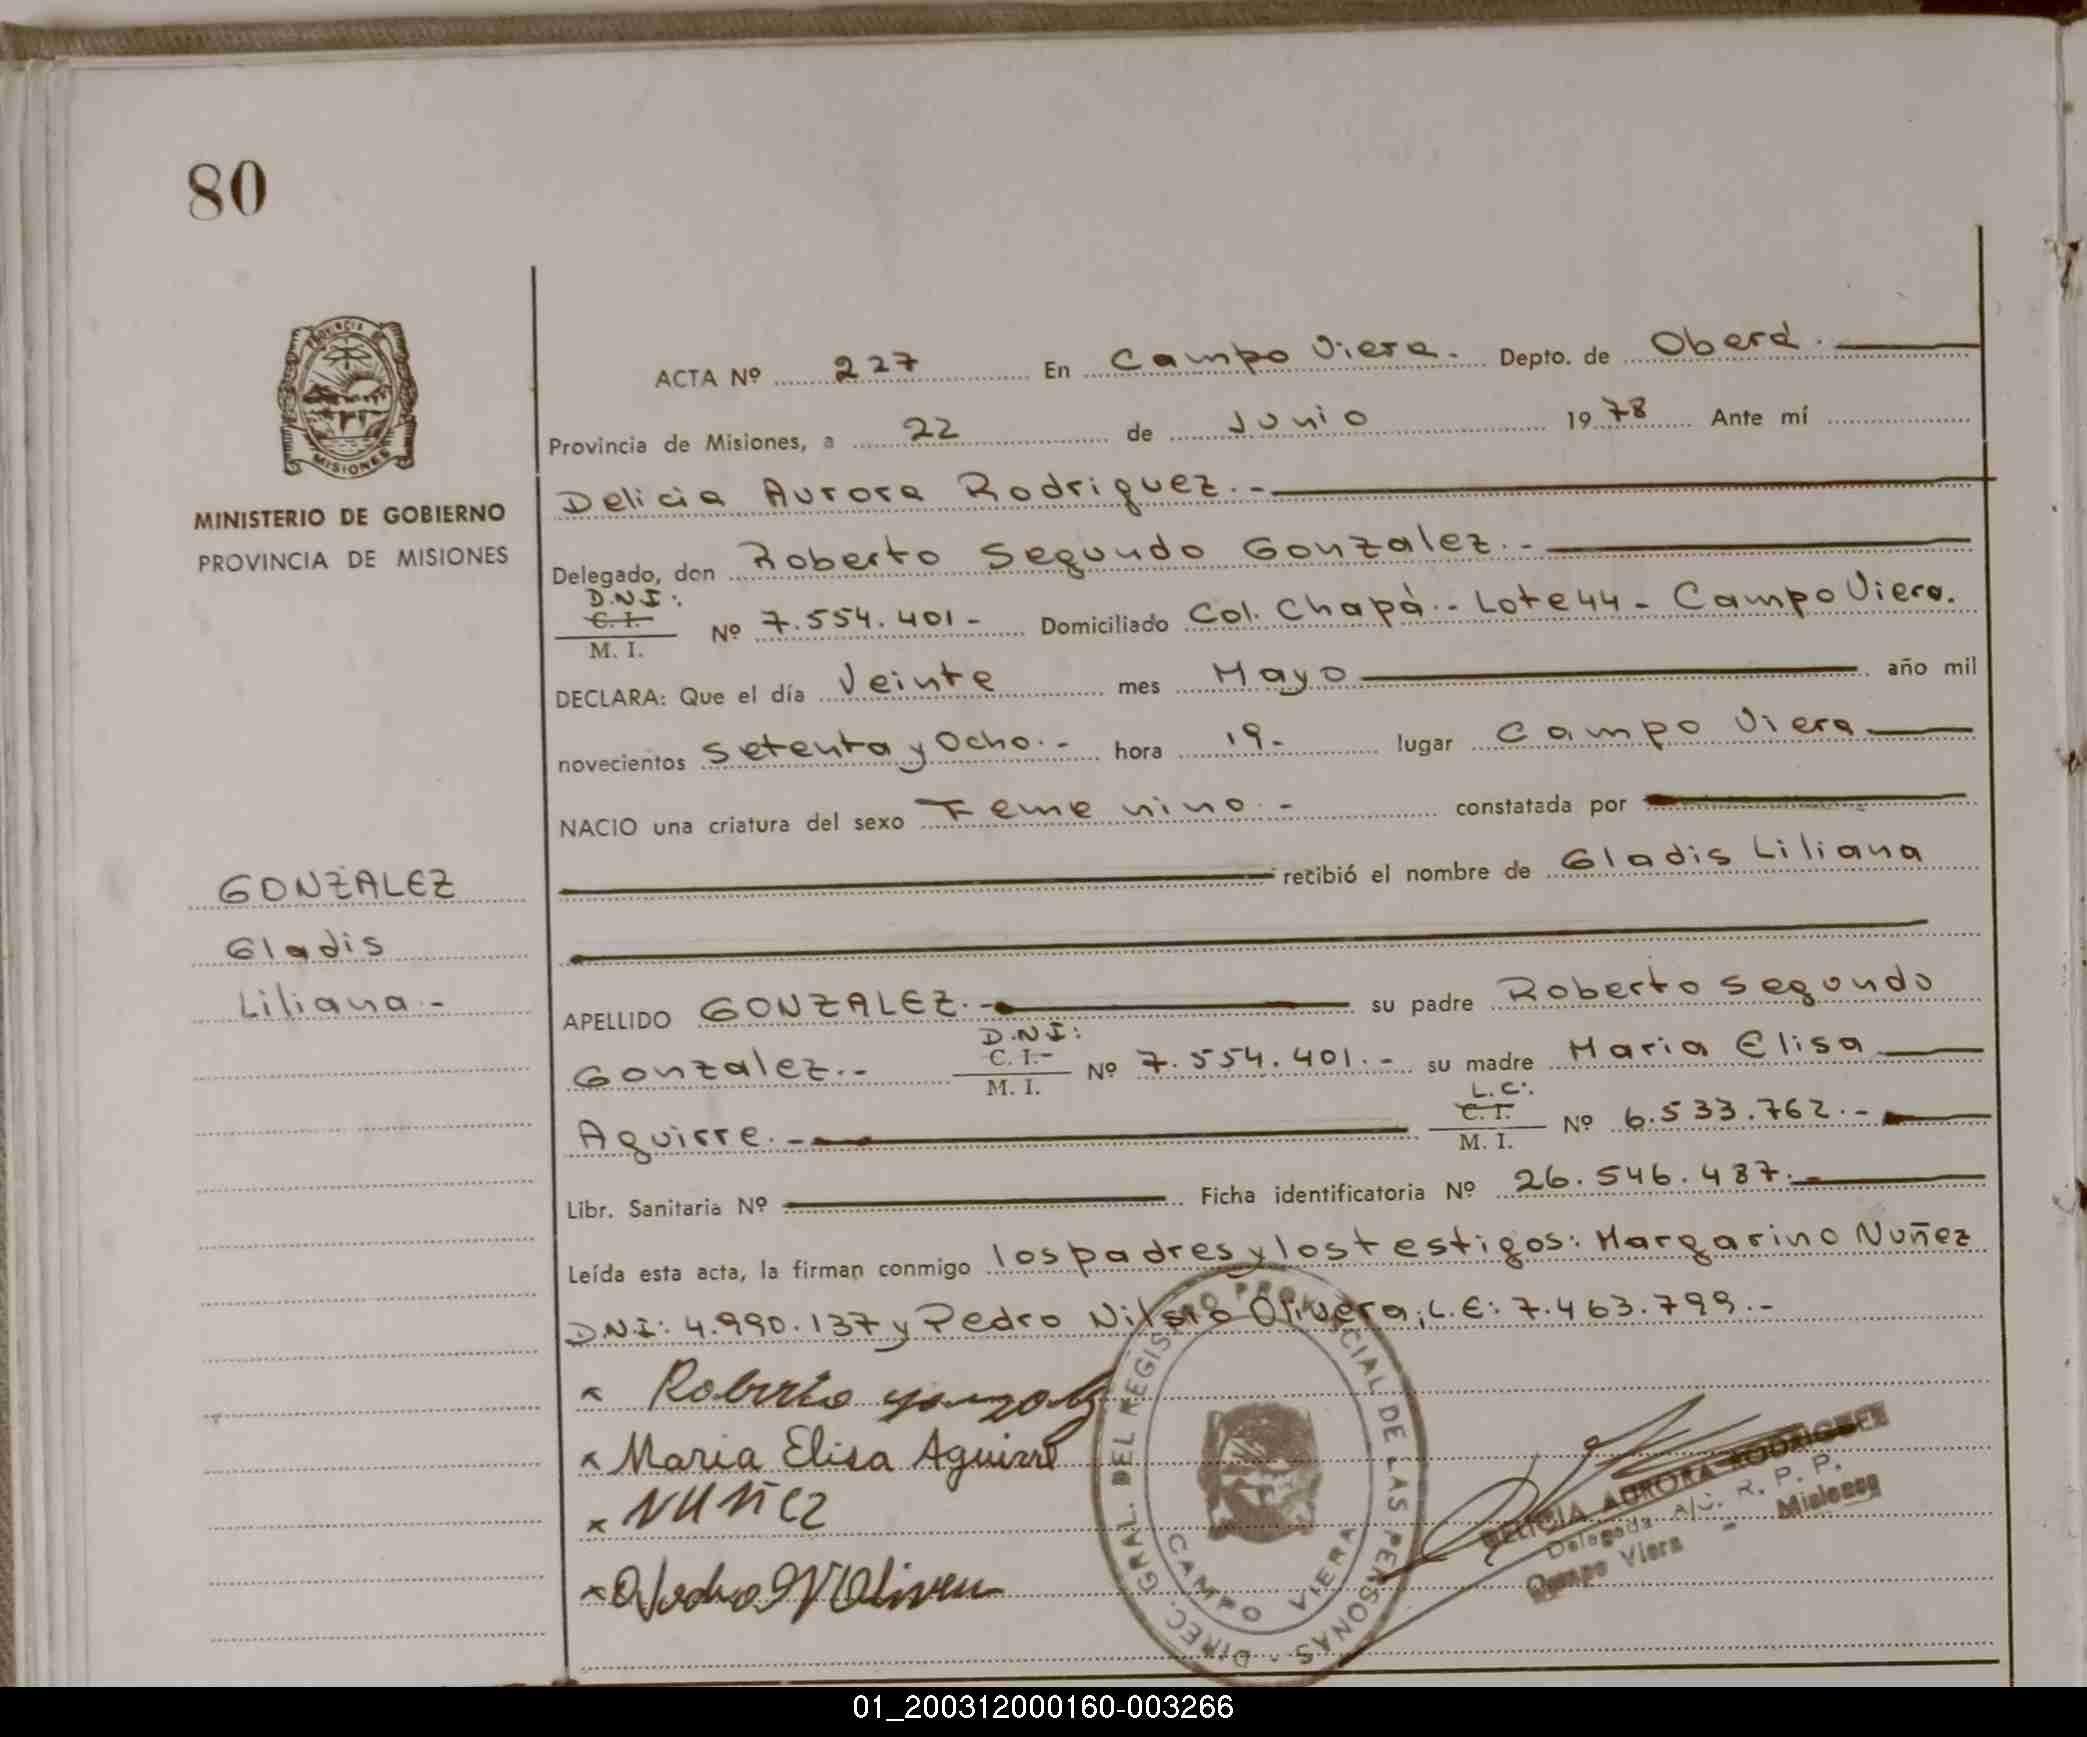 80
PROVINCIA DE
MISIONES
MINISTERIO DE GOBIERNO
PROVINCIA DE MISIONES
GONZALEZ
Gladis
Liliana.-
ACTA Nº 227 En Campo Viera. Depto. de Oberá.
Provincia de Misiones, a 22 de Junio 1978 Ante mí
Delicia Aurora Rodriguez.-
Delegado, don Roberto Segundo Gonzalez.-
D.N.I:
C. I.
M. I. Nº 7.554.401- Domiciliado Col. Chapá.- Lote 44- Campo Viera.
DECLARA: Que el día Veinte mes Mayo año mil
novecientos setenta y Ocho.- hora 19- lugar Campo Viera
NACIO una criatura del sexo Femenino.- constatada por
recibió el nombre de Gladis Liliana
APELLIDO GONZALEZ.- su padre Roberto Segundo
D.N.I:
Gonzalez.- C. I.- M. I. Nº 7.554.401.- su madre Maria Elisa
L.C:
Aguirre.- C. I. M. I. Nº 6.533.762.-
Libr. Sanitaria Nº Ficha identificatoria Nº 26.546.487.-
Leída esta acta, la firman conmigo los padres y los testigos: Margarino Nuñez
D.N.I: 4.990.137 y Pedro Nilsio Olivera, L.E: 7.463.799.-
x Roberto gonzalez
x Maria Elisa Aguirre
x NUÑEZ
x Pedro N Olivera
DIREC. GRAL. DEL REGISTRO PROVINCIAL DE LAS PERSONAS -
CAMPO VIERA
DELICIA AURORA RODRIGUEZ
Delegada A/C. R. P. P.
Campo Viera - Misiones
01_200312000160-003266